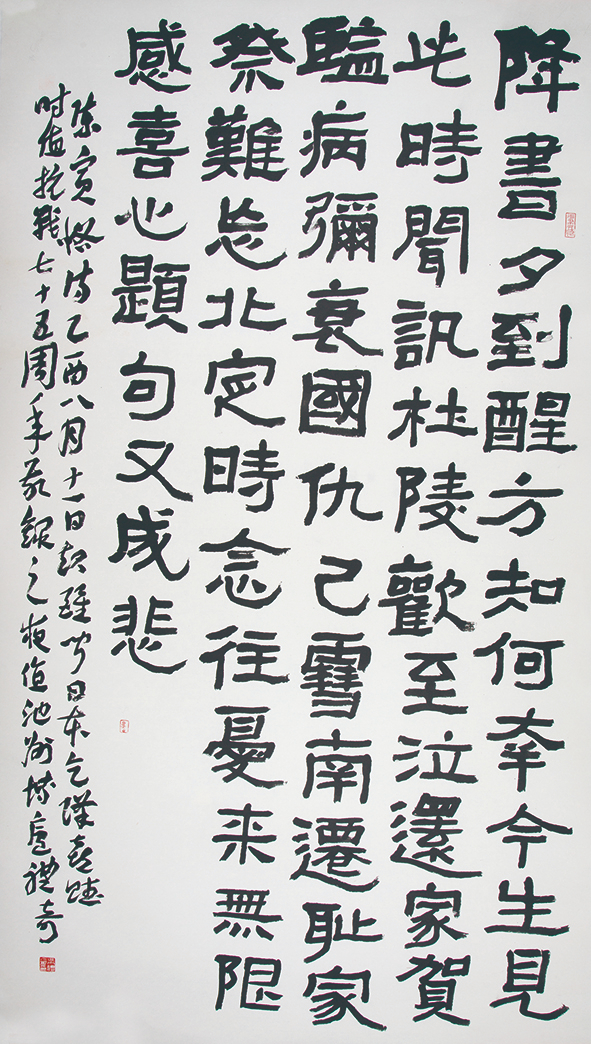 降書夕到醒方知何幸今生見
此時聞訊杜陵歡至泣還家賀
監病彌衰國仇已雪南遷耻家
祭難忘北定時念往憂来無限
感喜心題句又成悲
陈寅恪诗乙酉八月十一日起日本乞降喜赋
时值抗战七十五周年之夜池州